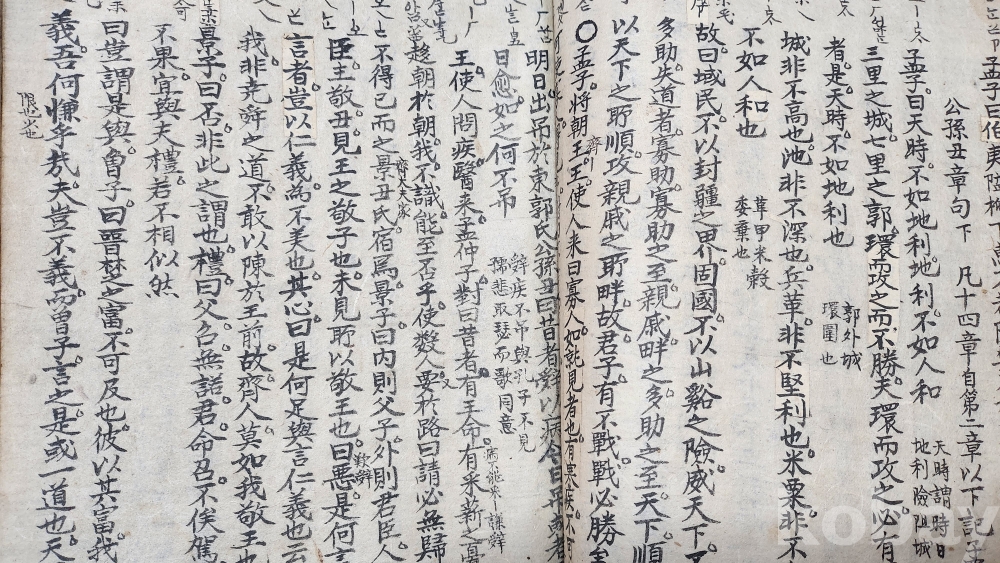 孟子曰伯夷
公孫丑章句下 凡十四章自第二章以下記子
孟子曰天時不如地利地利不如人和 天時謂時日
地利險阻城
三里之城七里之郭環而攻之而不勝夫環而攻之必有
者是天時不如地利也 郭外城
環圍也
城非不高也池非不深也兵革非不堅利也米粟非不
不如人和也 革甲米穀
委棄也
故曰域民不以封疆之界固國不以山谿之險威天下不
多助失道者寡助寡助之至親戚畔之多助之至天下順
以天下之所順攻親戚之所畔故君子有不戰戰必勝
孟子將朝王王使人来曰寡人如就見者也有寒疾不可
明日出吊於東郭氏公孫丑曰昔者辭以病今日吊或者
曰愈如之何不吊 辭疾不吊與孔子不見
孺悲取瑟而歌同意
王使人問疾醫来孟仲子對曰昔者有王命有采薪之憂
病不能采謙辭
趍朝於朝我不識能至否乎使數人要於路曰請必無歸
不得已而之景丑氏宿焉景子曰內則父子外則君臣人
齊大夫家
臣王敬丑見王之敬子也未見所以敬王也曰惡是何言
歎辭
言者豈以仁義為不美也其心曰是何足與言仁義也云
我非堯舜之道不敢以陳於王前故齊人莫如我敬王也
景子曰否非此之謂也禮曰父召無諾君命召不俟駕
不果宜與夫禮若不相似然
曰豈謂是與曾子曰晉楚之富不可及也彼以其富我
義吾何慊乎哉夫豈不義而曾子言之是或一道也天
恨也少也